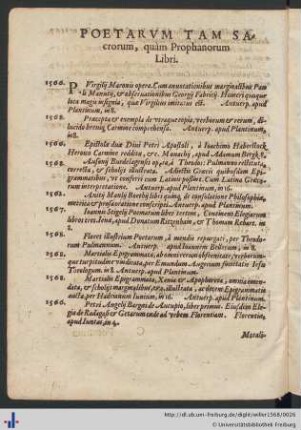 POETARVM TAM SA-
crorum, quàm Prophanorum
Libri.
1566. P. Virgilij Maronis opera. Cum annotationibus marginalibus Pau
li Manutij, & obseruationibus Georgij Fabricij. Homeri quoque
loca magis insignia, quæ Virgilius imitatus est. Antuerp. apud
Plantinum, in 8.
1568. Præcepta & exempla de vtraque copia, verborum & rerum, di-
lucida breuiq; Carmine comprehensa. Antuerp. apud Plantinum,
in 8.
1566. Epistolæ duæ Diui Petri Apostoli, à Ioachimo
Heroico Carmine redditæ, &c. Monachij, apud Adamum Berg, in 8.
1568. Ausonij Burdegalensis opera, à Theodor: Pulmanno restituta,
correcta, & scholijs illustrata. Adiectis Græcis quibusdam Epi-
grammatibus, vt conferri cum Latinis possint. Cum Latina Græco-
rum interpretatione. Antuerp. apud Plantinum, in 16.
1562. Anitij Manlij Boethij libri quinq; de consolatione Philosophiæ,
metricæ & prosa oratione conscripti. Antuerp. apud Plantinum, in 8.
1567. Ioannis Stigelij Poematum liber tertius, Continens Elegiarum
libros tres. Ienæ, apud Donatum Ratzenhain, & Thomam Rebart.
in 8.
1568. Flores illustrium Poetarum à mendis repurgati, per Theodo-
rum Pulmannum. Antuerp. apud Ioannem Bellerum, in 8.
1568. Martialis Epigrammata, ab omni rerum obscœnitate, verborum-
que turpitudine vindicata, per Emundum Augerium societatis Iesu
Theologum. in 8. Antuerp. apud Plantinum.
1568. Martialis Epigrammata, Xenia & Apophoreta, omnia emenda-
ta, & scholijs marginalibus, &c. illustrata, ac idem Epigrammatis
aucta, per Hadrianum Iunium, in 16. Antuerp. apud Plantinum.
1566. Petri Angelij Bargæi de Aucupio, liber primus. Eiusdem Ele-
gia de Radagasi & Getarum cæde ad vrbem Florentiam. Florentiæ,
apud Iuntas, in 4.
Morali-
http://dl.ub.uni-freiburg.de/diglit/willer1568/0026
© Universitätsbibliothek Freiburg